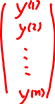 y(1)
y(2)
⋮
y(m)